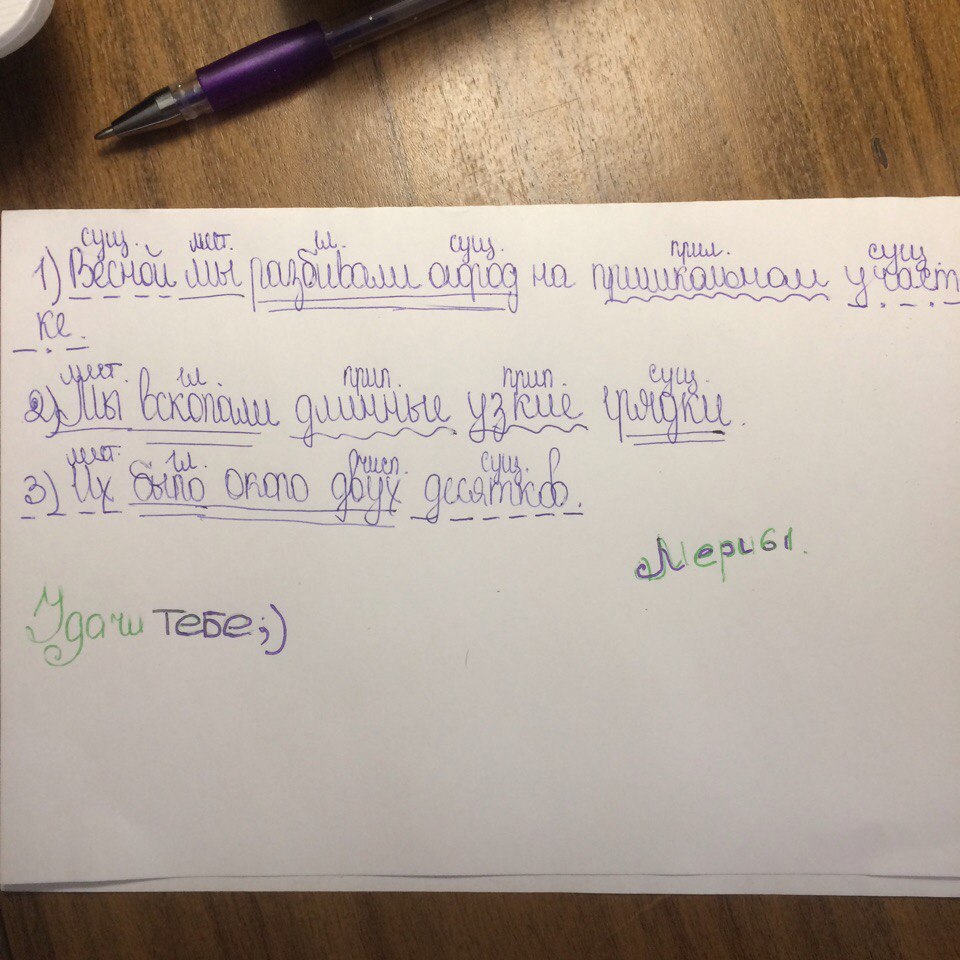 сущ. мест. гл. сущ. прил. сущ.
1) Весной мы разбивали огород на пришкольном участ
ке.
мест. гл. прил. прил. сущ.
2) Мы вскопали длинные узкие грядки.
мест. гл. числ. сущ.
3) Их было около двух десятков.
Удачи тебе ;)